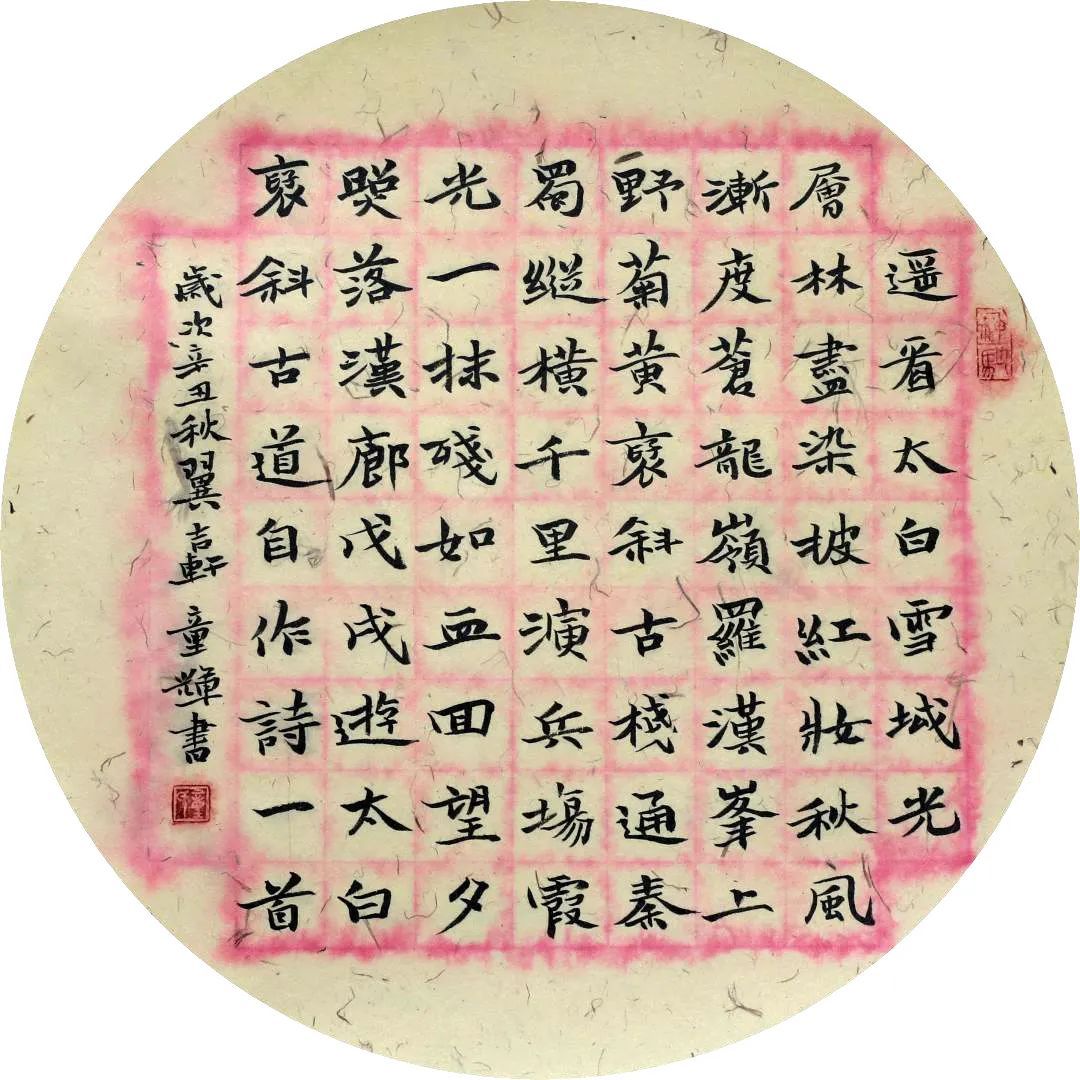 遥看太白雪域光
層林盡染披紅妝秋風
漸度蒼龍嶺羅漢峯上
野菊黄褒斜古棧通秦
蜀縱橫千里演兵場霞
光一抹殘如血囬望夕
落漢廊戊戌遊太白
褒斜古道自作詩一首
歲次辛丑秋翼吉軒童輝書